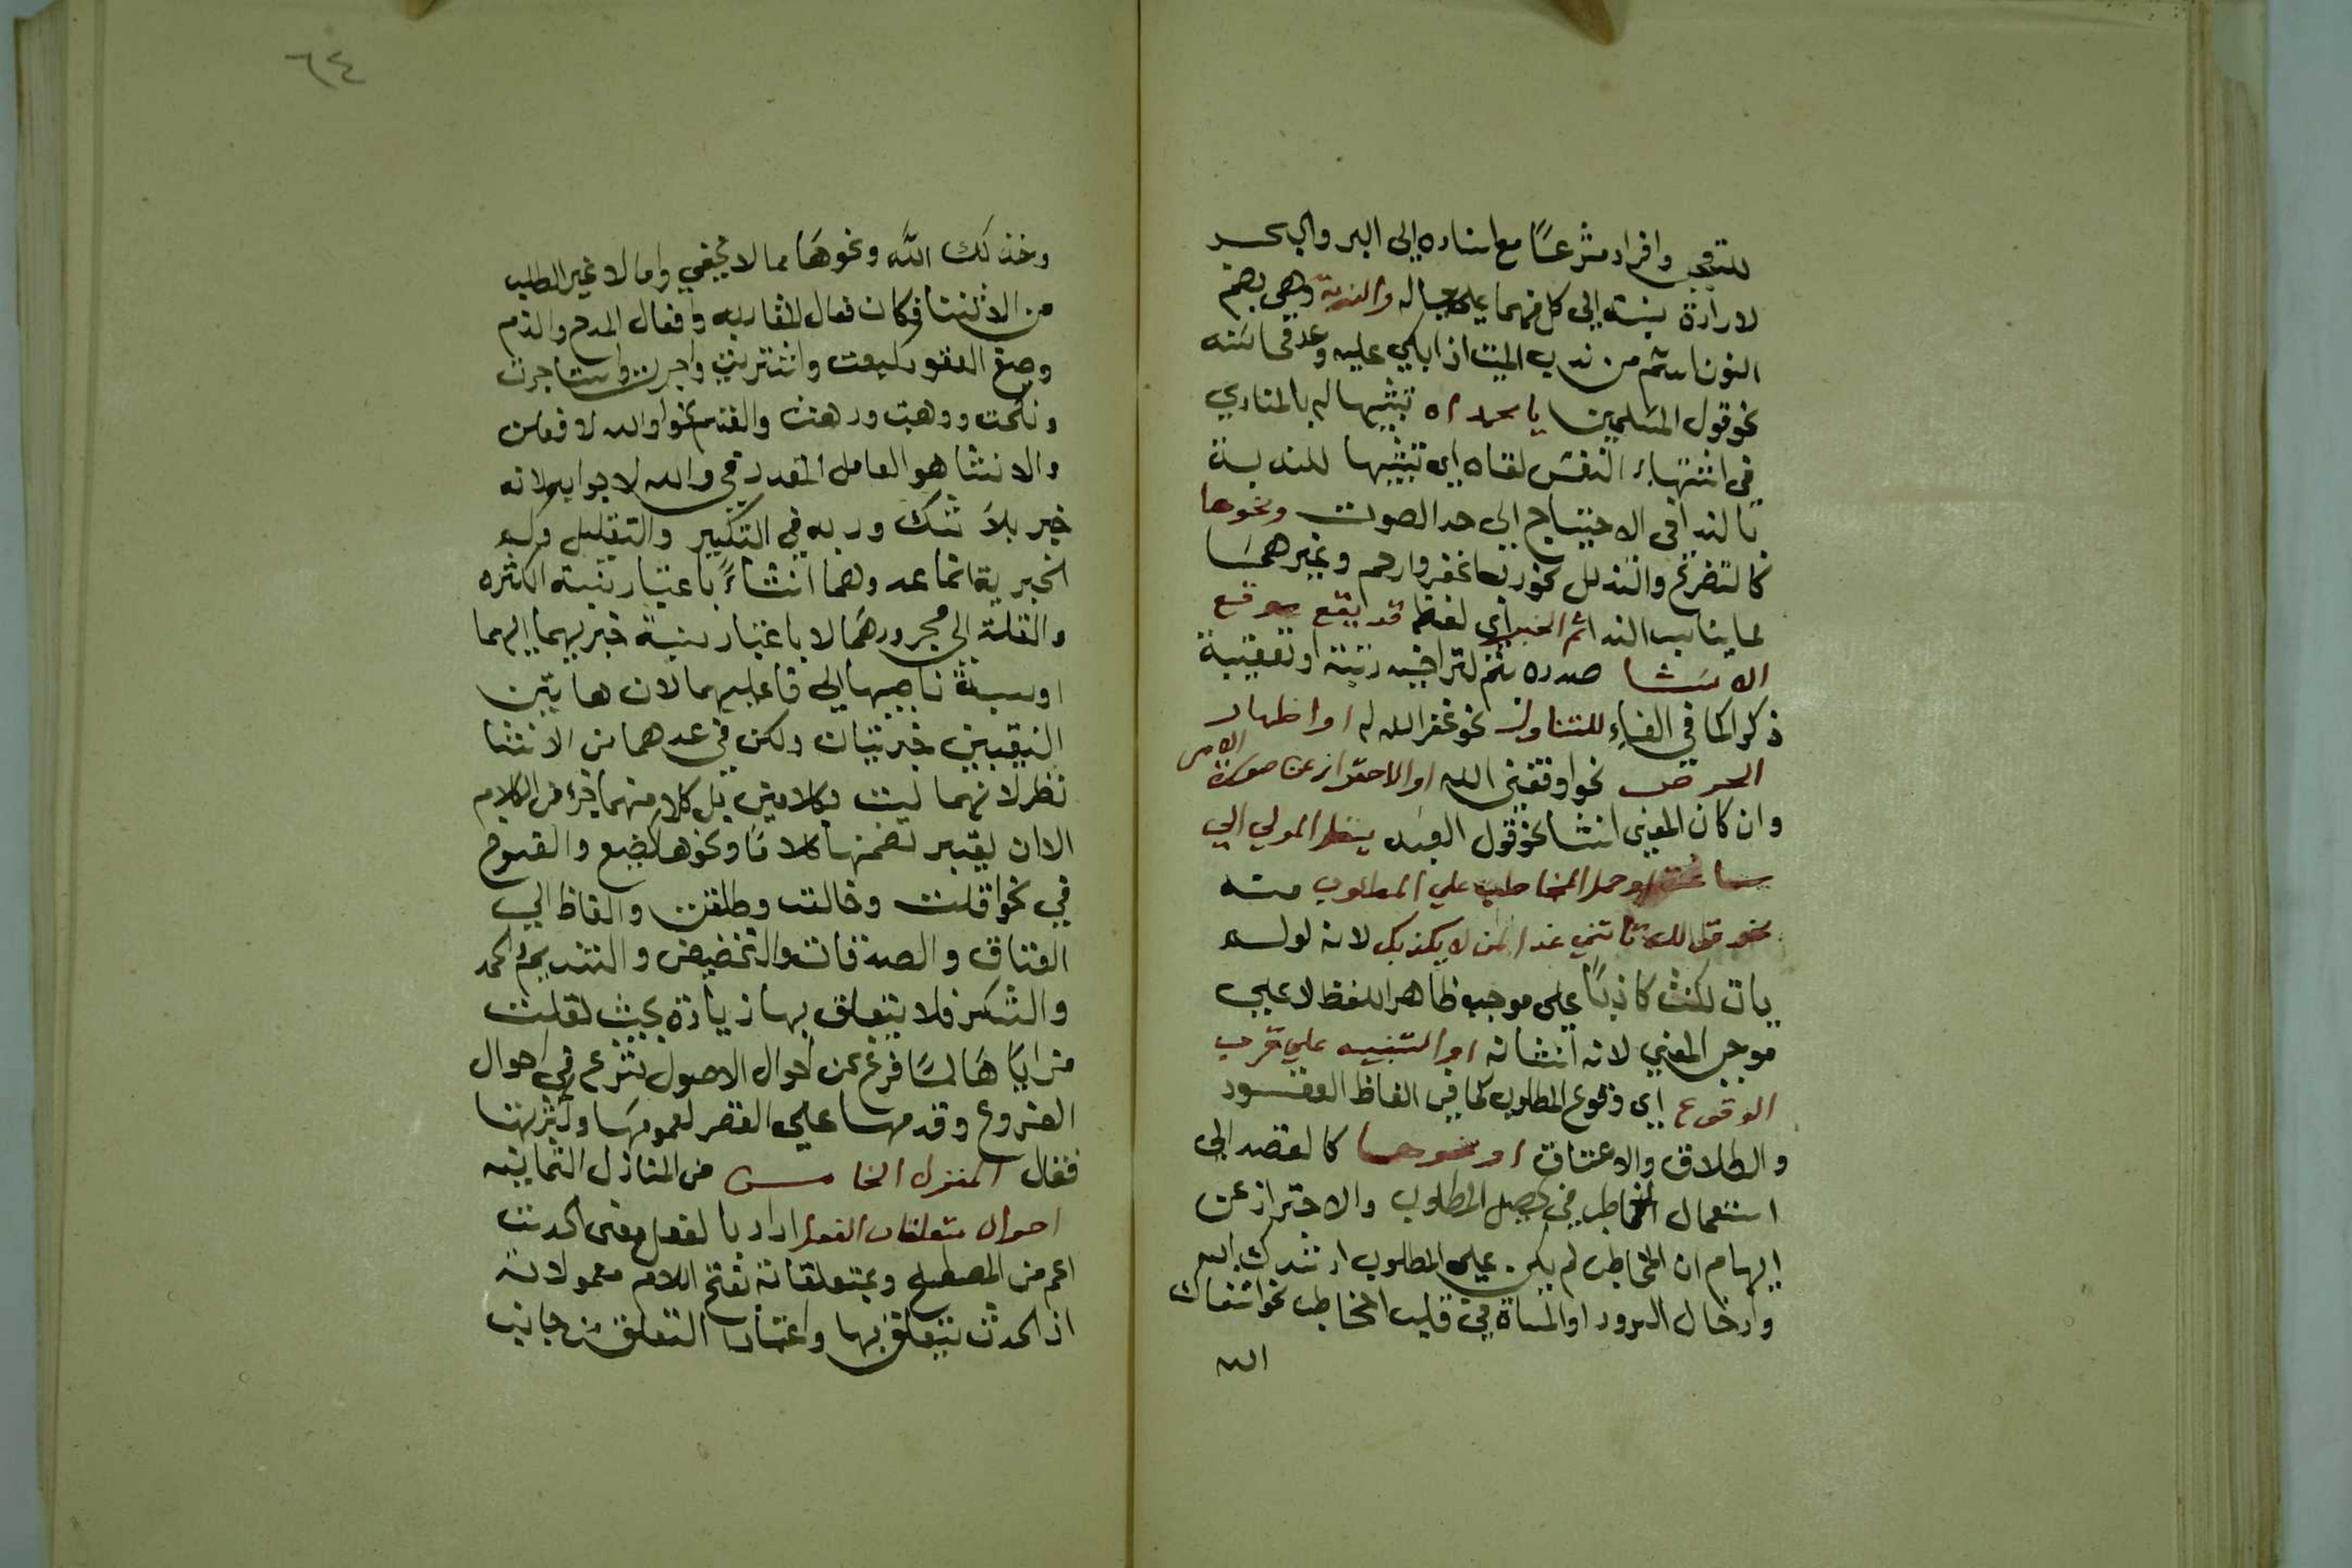 للتوجع وافراد مترعًا مع اسناده إلى البر والبحــر
لارادة نسبته إلى كل منهما على حياله والندبة وهي بضم
النون اسم من ندب الميت اذا بكى عليه وعد محاسنه
نحو قول المسلمين يا محمداه تشبيها له بالمنادي
في اشتهاء النفس لقاه اي تشبيها للندبة
بالندا في الاحتياج الى مد الصوت ونحوها
كالتضرع والتذلل نحو ربنا اغفر وارحم وغيرهما
مما يناسب الندا ثم الخبر اي لفظه قد يقع موقع
الانشا صدره بثم لتراخيه رتبة او تعقيبه
ذكرا كما في الفاء للتفاول نحو غفر الله له او اظهار
الحرص نحو وفقني الله او الاحتراز عن صورة الامر
وان كان المعنى انشا نحو قول العبد ينظر المولي الي
ساعة او حمل المخاطب على المطلوب منه
نحو قولك تاتيني غدا لمن لا يكذبك لانه لو لم
يات لكنت كاذبًا على موجب ظاهر اللفظ لا على
موجب المعنى لانه انشائه او التنبيه على قرب
الوقوع اي وقوع المطلوب كما في الفاظ العقود
والطلاق والاعتاق او نحوها كالقصد إلى
استعمال المخاطب في تحصيل المطلوب والاحتراز عن
ايهام ان المخاطب لم يكن على المطلوب
وادخال السرور او المساة في قلب المخاطب نحو شفاك
الله
٦٤
وخذلك الله ونحوها مما لا يخفى واما لا غير الطلب
من الانشا فكان فعال المقاربه وافعال المدح والذم
وصيغ العقود كبعت واشتريت واجرت واستاجرت
ونكحت ووهبت ورهنت والقسم نحو والله لا فعلن
والانشا هو العامل المقدر في والله لا جوابه لانه
خبر بلا شك ورب في التكثير والتقليل وكم
الخبرية انما عد وهما انشاءً باعتبار نسبة الكثره
والقلة إلى مجرورهما لا باعتبار نسبة خبريهما اليهما
او نسبة ناصبيهما الى فاعليهما لان هاتين
النسبتين خبريتان ولكن في عدهما من الانشا
نظر لانهما ليست بكلامين بل كل منهما جزء من الكلام
الا ان يعتبر تضمنها كلامًا ونحوها كصيغ والفسوخ
في نحو اقلت وخالعت وطلقت والفاظ
العتاق والصدقات والتخضيض والتنديم والحمد
والشكر فلا يتعلق بها زيادة بحث لقلت
مزاياها لما فرغ من احوال الاصول شرع في احوال
الفروع وقدمها على القصر لعمومها وكثرتها
فقال المنزل الخامــس من المنازل الثمانيه
احوال متعلقات الفعل اراد بالفعل معنى الحدث
اعم من المصطلح وبمتعلقاته بفتح اللام معمولاته
اذ الحدث يتعلق بها واعتبار التعلق من جانب